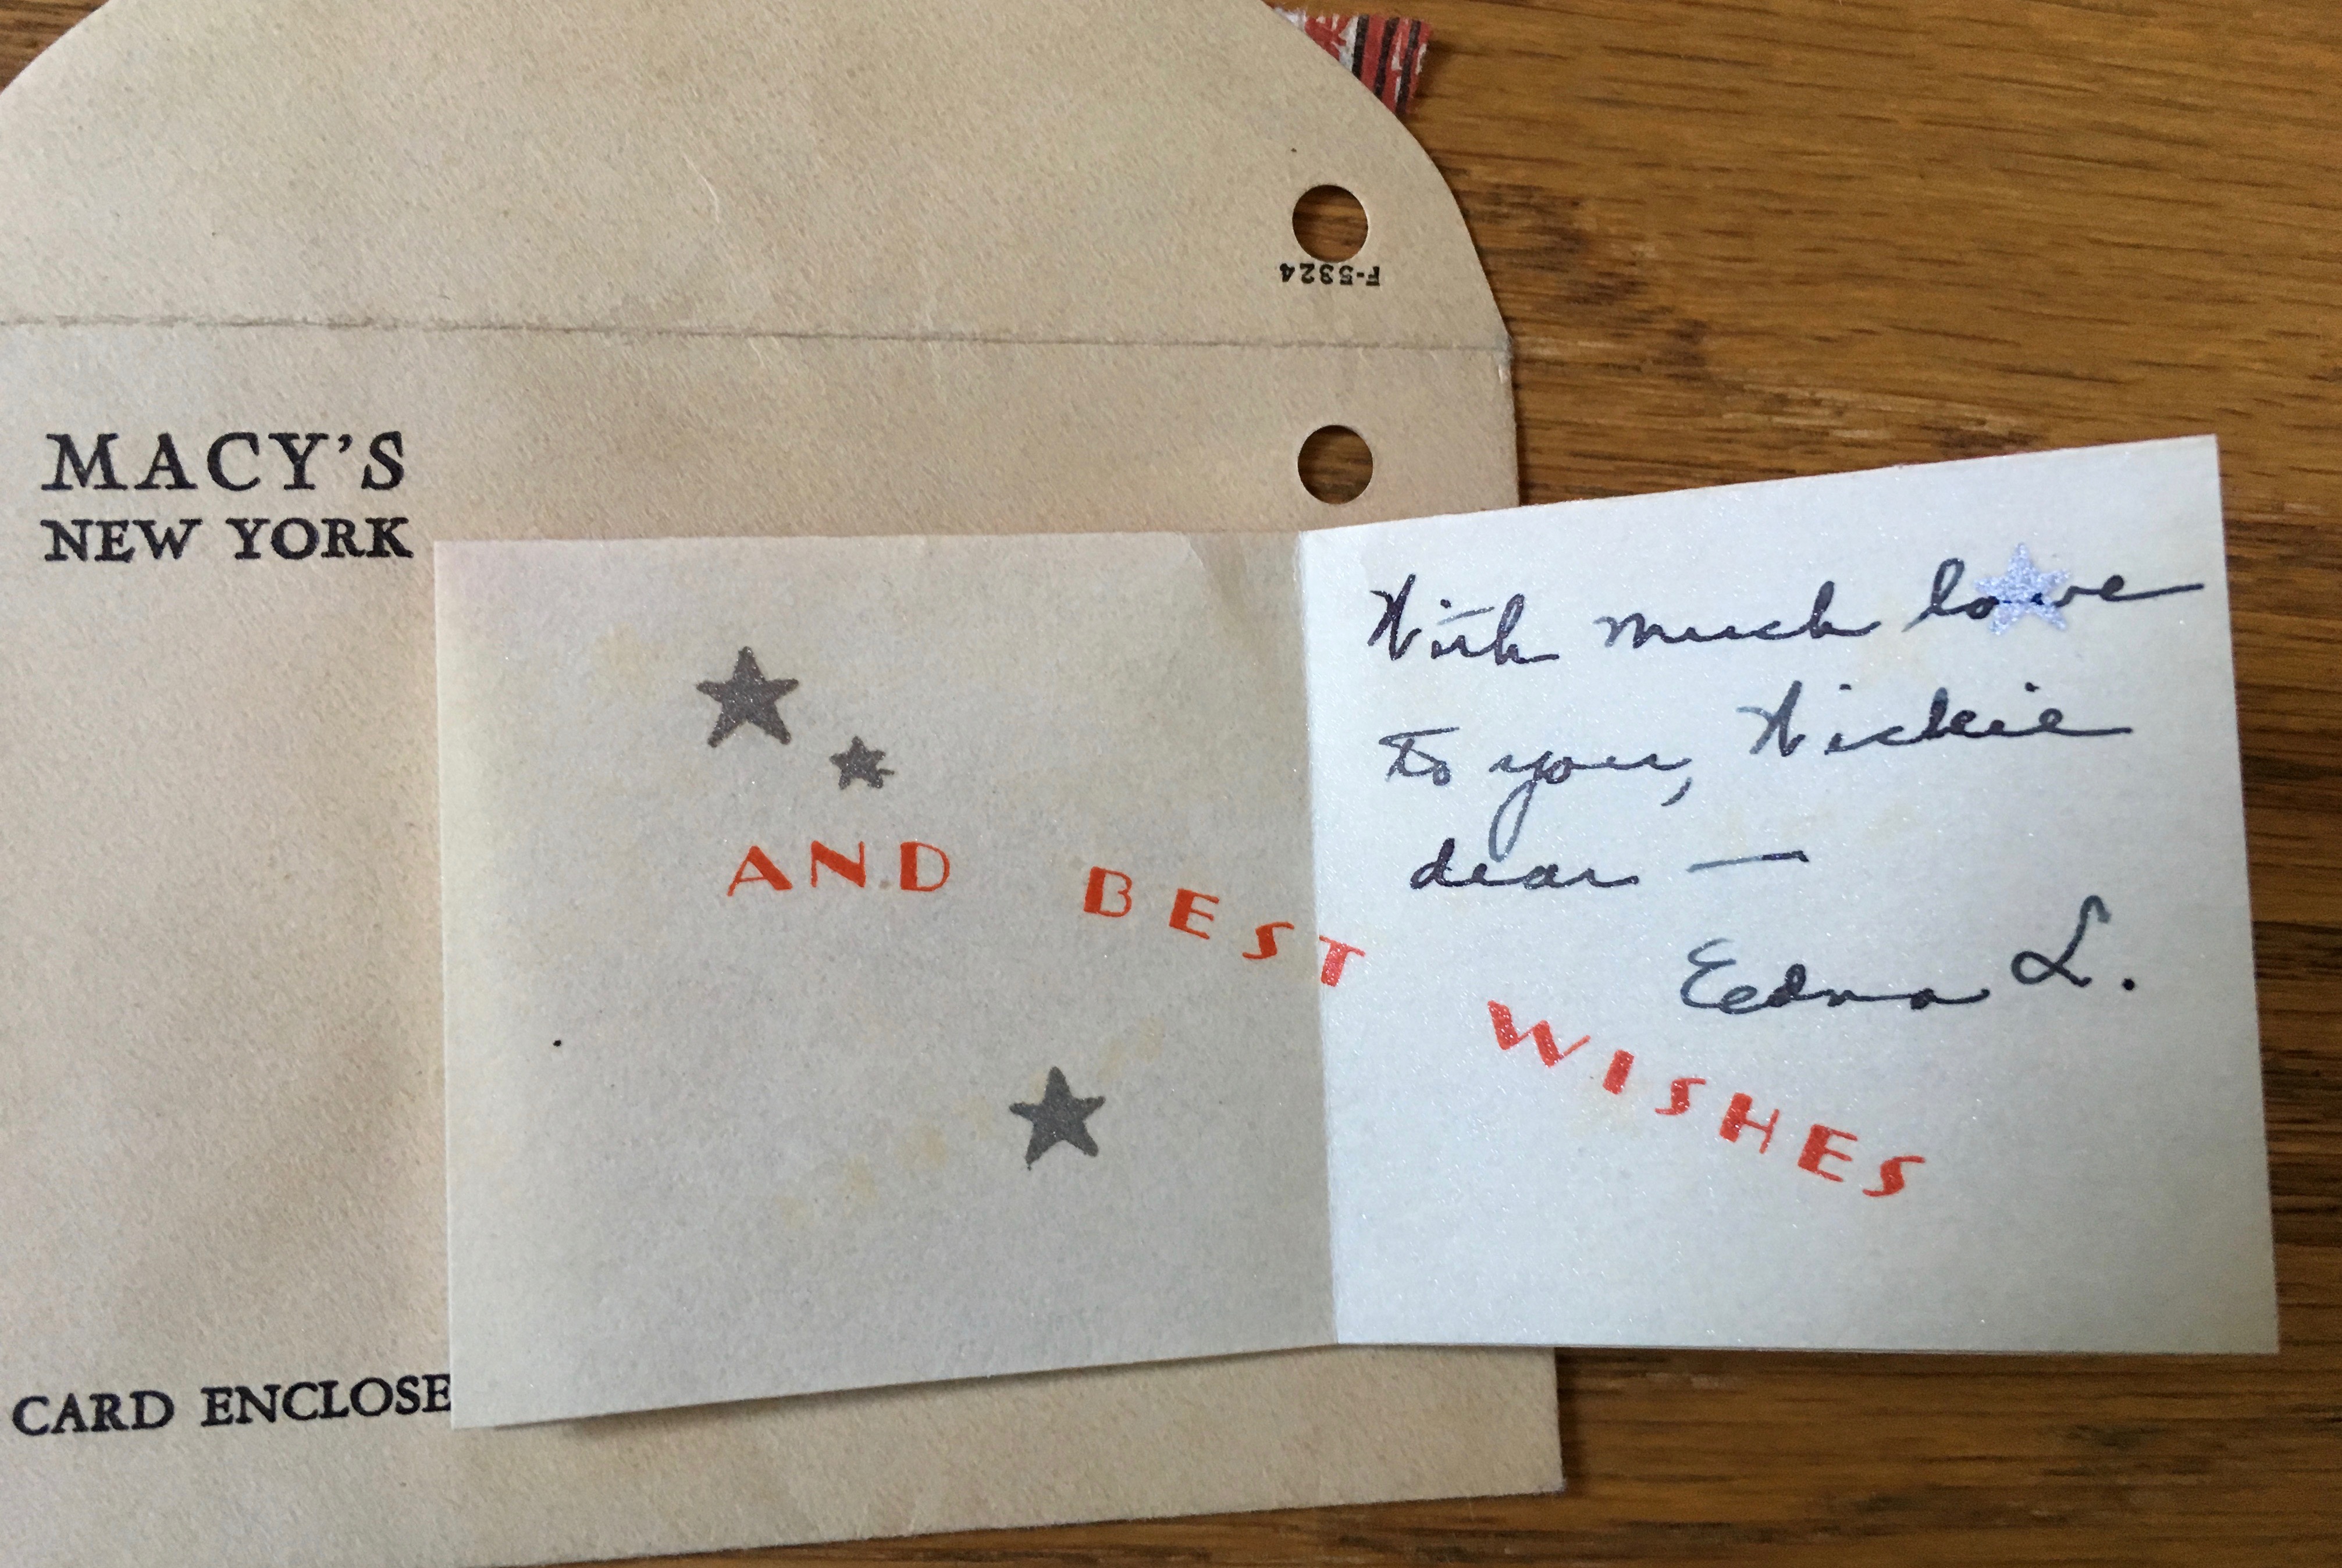 F-5324
MACY'S
NEW YORK
CARD ENCLOSE
AND BEST WISHES
With much love
to you, Nickie
dear —
Edna L.